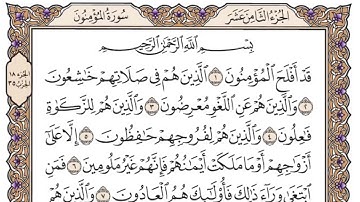 الجزء الثامن عشر
سورة المؤمنون
بِسْمِ اللَّهِ الرَّحْمَٰنِ الرَّحِيمِ
قَدْ أَفْلَحَ الْمُؤْمِنُونَ ١ الَّذِينَ هُمْ فِي صَلَاتِهِمْ خَاشِعُونَ
٢ وَالَّذِينَ هُمْ عَنِ اللَّغْوِ مُعْرِضُونَ ٣ وَالَّذِينَ هُمْ لِلزَّكَوٰةِ
فَاعِلُونَ ٤ وَالَّذِينَ هُمْ لِفُرُوجِهِمْ حَافِظُونَ ٥ إِلَّا عَلَىٰ
أَزْوَاجِهِمْ أَوْ مَا مَلَكَتْ أَيْمَانُهُمْ فَإِنَّهُمْ غَيْرُ مَلُومِينَ ٦ فَمَنِ
ابْتَغَىٰ وَرَاءَ ذَٰلِكَ فَأُولَٰئِكَ هُمُ الْعَادُونَ ٧ وَالَّذِينَ هُمْ
الجزء ١٨
الحزب ٣٥